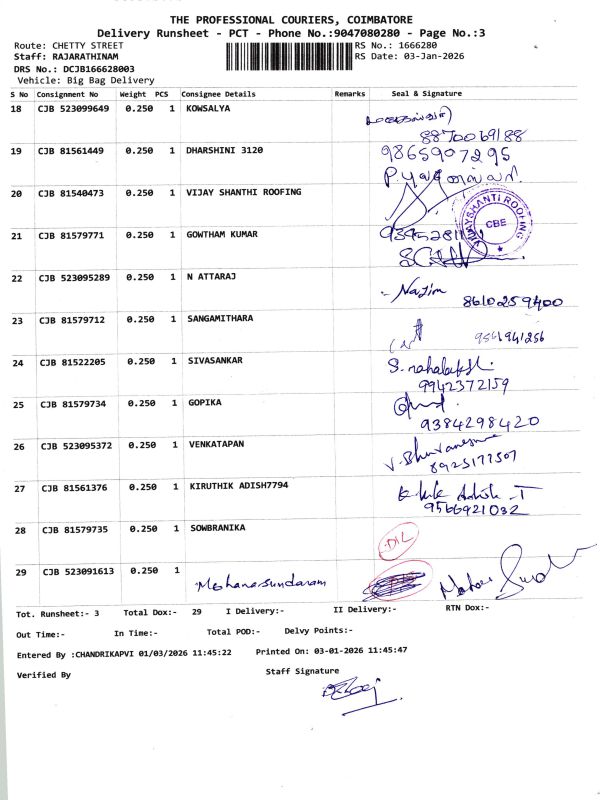 THE PROFESSIONAL COURIERS, COIMBATORE
Delivery Runsheet - PCT - Phone No.:9047080280 - Page No.:3
Route: CHETTY STREET
RS No.: 1666280
Staff: RAJARATHINAM
RS Date: 03-Jan-2026
DRS No.: DCJB166628003
Vehicle: Big Bag Delivery
S No Consignment No Weight PCS Consignee Details Remarks Seal & Signature
18 CJB 523099649 0.250 1 KOWSALYA
8870069188
19 CJB 81561449 0.250 1 DHARSHINI 3120 9865907295
20 CJB 81540473 0.250 1 VIJAY SHANTHI ROOFING
VIJAYSHANTI ROOFING CBE
21 CJB 81579771 0.250 1 GOWTHAM KUMAR
22 CJB 523095289 0.250 1 N ATTARAJ
Najim 8610259400
23 CJB 81579712 0.250 1 SANGAMITHARA
24 CJB 81522205 0.250 1 SIVASANKAR
9942372159
25 CJB 81579734 0.250 1 GOPIKA
9384298420
26 CJB 523095372 0.250 1 VENKATAPAN
8925177507
27 CJB 81561376 0.250 1 KIRUTHIK ADISH7794
9566921032
28 CJB 81579735 0.250 1 SOWBRANIKA
D/L
29 CJB 523091613 0.250 1 Mohanasundaram
Tot. Runsheet:- 3 Total Dox:- 29 I Delivery:- II Delivery:- RTN Dox:-
Out Time:- In Time:- Total POD:- Delvy Points:-
Entered By :CHANDRIKAPVI 01/03/2026 11:45:22 Printed On: 03-01-2026 11:45:47
Verified By Staff Signature